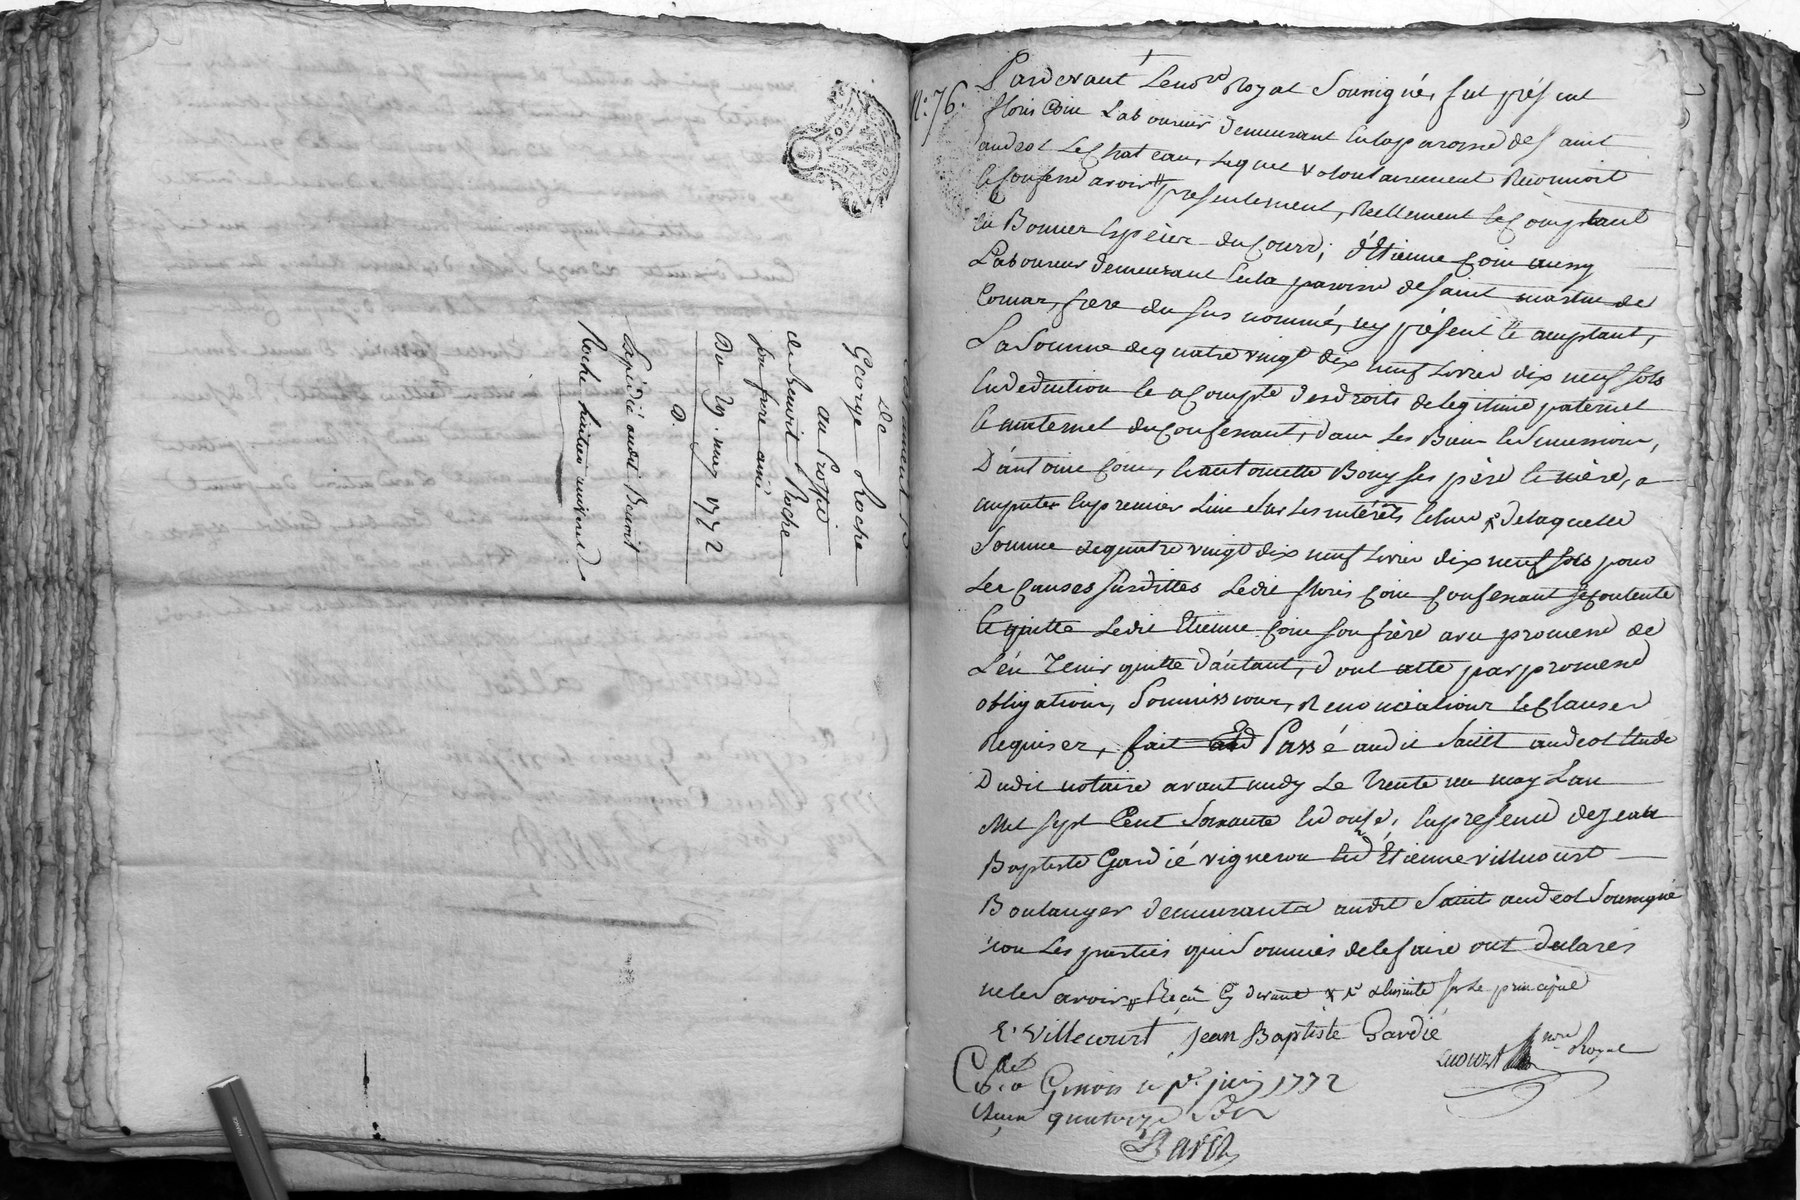 Testament
De
George Roche
au Proffit
de Benoit Roche
son frere ainé
Du 29. may 1772
Expédié audit Benoit
Roche heritier universel
N.: 76.
Pardevant Le no.re Royal Soussigné, fut présent
floris Coin Laboureur demeurant en la paroisse de Saint
andeol Le Chateau, Lequel volontairement Reconnoit
et Confesse avoir # presentement, Réellement et Comptant
en Bonnes Espèces du Cours, d'Etienne Coin aussy
Laboureur demeurant en la paroisse de Saint martin de
Cornas, frere du sus nommé, icy présent et acceptant,
La Somme de quatre vingt dix neuf Livres dix neuf sols
En deduction et acompte des droits de legitime paternel
et maternel du Confessant, dans Les Biens et Successions,
D'antoine Coin, et antoinette Bony ses père et mère, a
imputer En premier Lieu Sur Les intérêts Echus x de laquelle
Somme de quatre vingt dix neuf Livres dix neuf sols pour
Les Causes Susdittes Ledit floris Coin Confessant se Contente
et quitte Ledit Etienne Coin son frère avec promesse de
L'en Tenir quitte d'autant, dont acte par promesse
obligations, Soumissions, Renonciations et Clauses
Requises, fait Et Passé audit Saint andeol Etude
Dudit notaire avant midy Le Trente un may L'an
Mil Sept Cent Soixante et douse, En presence de Jean
Baptiste Gardié vigneron Et Etienne villecourt
Boulanger demeurants audit Saint andeol Soussignés
non Les parties qui Sommées de le faire ont déclarés
ne le Savoir, # Reçu Cy devant x et Ensuite sur Le principal
E. villecourt Jean Baptiste Gardié
nore Royal
C.lé a Givors le p.er juin 1772
Reçu quatorze Sols